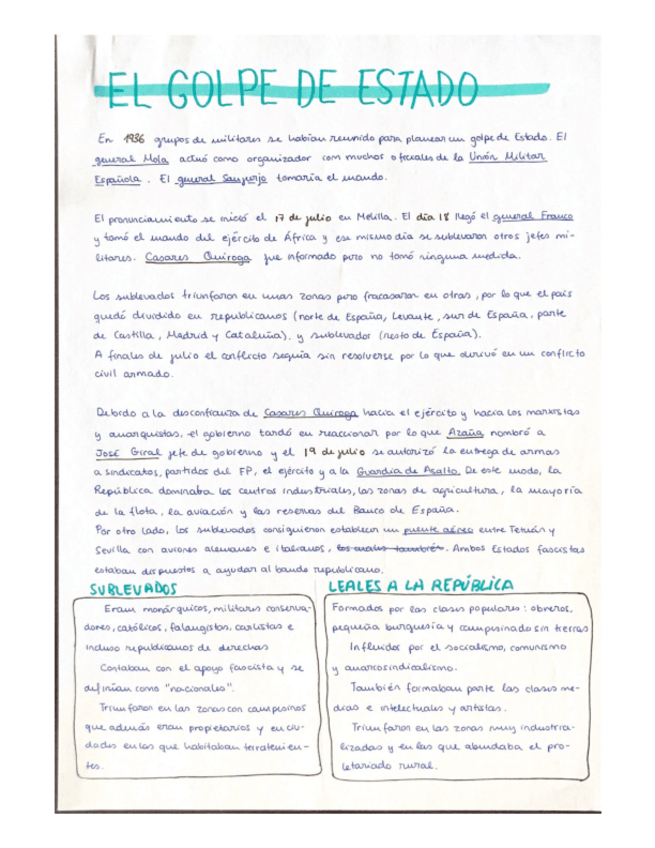 EL GOLPE DE ESTADO
En 1936 grupos de militares se habían reunido para planear un golpe de Estado. El
general Mola actuó como organizador con muchos oficiales de la Unión Militar
Española. El general Sanjurjo tomaría el mando.
El pronunciamiento se inició el 17 de julio en Melilla. El día 18 llegó el general Franco
y tomó el mando del ejército de África y ese mismo día se sublevaron otros jefes mi-
litares. Casares Quiroga fue informado pero no tomó ninguna medida.
Los sublevados triunfaron en unas zonas pero fracasaron en otras, por lo que el país
quedó dividido en republicanos (norte de España, Levante, sur de España, parte
de Castilla, Madrid y Cataluña), y sublevador (resto de España).
A finales de julio el conflicto seguía sin resolverse por lo que derivó en un conflicto
civil armado.
Debido a la desconfianza de Casares Quiroga hacia el ejército y hacia los marxistas
y anarquistas, el gobierno tardó en reaccionar por lo que Azaña nombró a
José Giral jefe de gobierno y el 19 de julio se autorizó la entrega de armas
a sindicatos, partidos del FP, el ejército y a la Guardia de Asalto. De este modo, la
República dominaba los centros industriales, las zonas de agricultura, la mayoría
de la flota, la aviación y las reservas del Banco de España.
Por otro lado, los sublevados consiguieron establecer un puente aéreo entre Tetuán y
Sevilla con aviones alemanes e italianos, los cuales también. Ambos Estados fascistas
estaban dispuestos a ayudar al bando republicano.
SUBLEVADOS
Eran monárquicos, militares conserva-
dores, católicos, falangistas, carlistas e
incluso republicanos de derechas
Contaban con el apoyo fascista y se
definían como "nacionales".
Triunfaron en las zonas con campesinos
que además eran propietarios y en ciu-
dades en las que habitaban terratenien-
tes.
LEALES A LA REPÚBLICA
Formados por las clases populares: obreros,
pequeña burguesía y campesinado sin tierras
Influidos por el socialismo, comunismo
y anarcosindicalismo.
También formaban parte las clases me-
dias e intelectuales y artistas.
Triunfaron en las zonas muy industria-
lizadas y en las que abundaba el pro-
letariado rural.